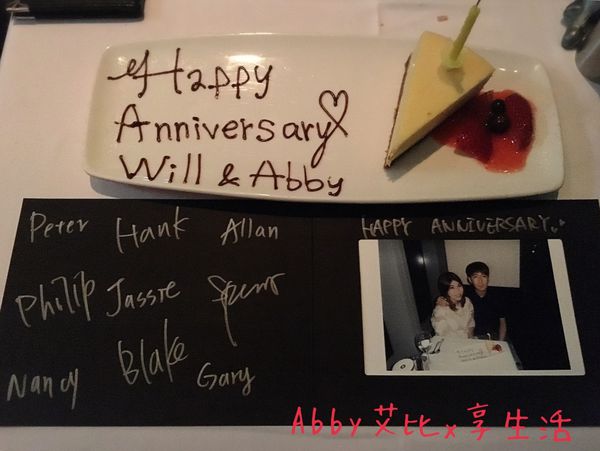 Happy
Anniversary
Will & Abby
Peter Hank Allan
HAPPY ANNIVERSARY
Philip Jassie
Nancy Blake Gary
Abby艾比x享生活